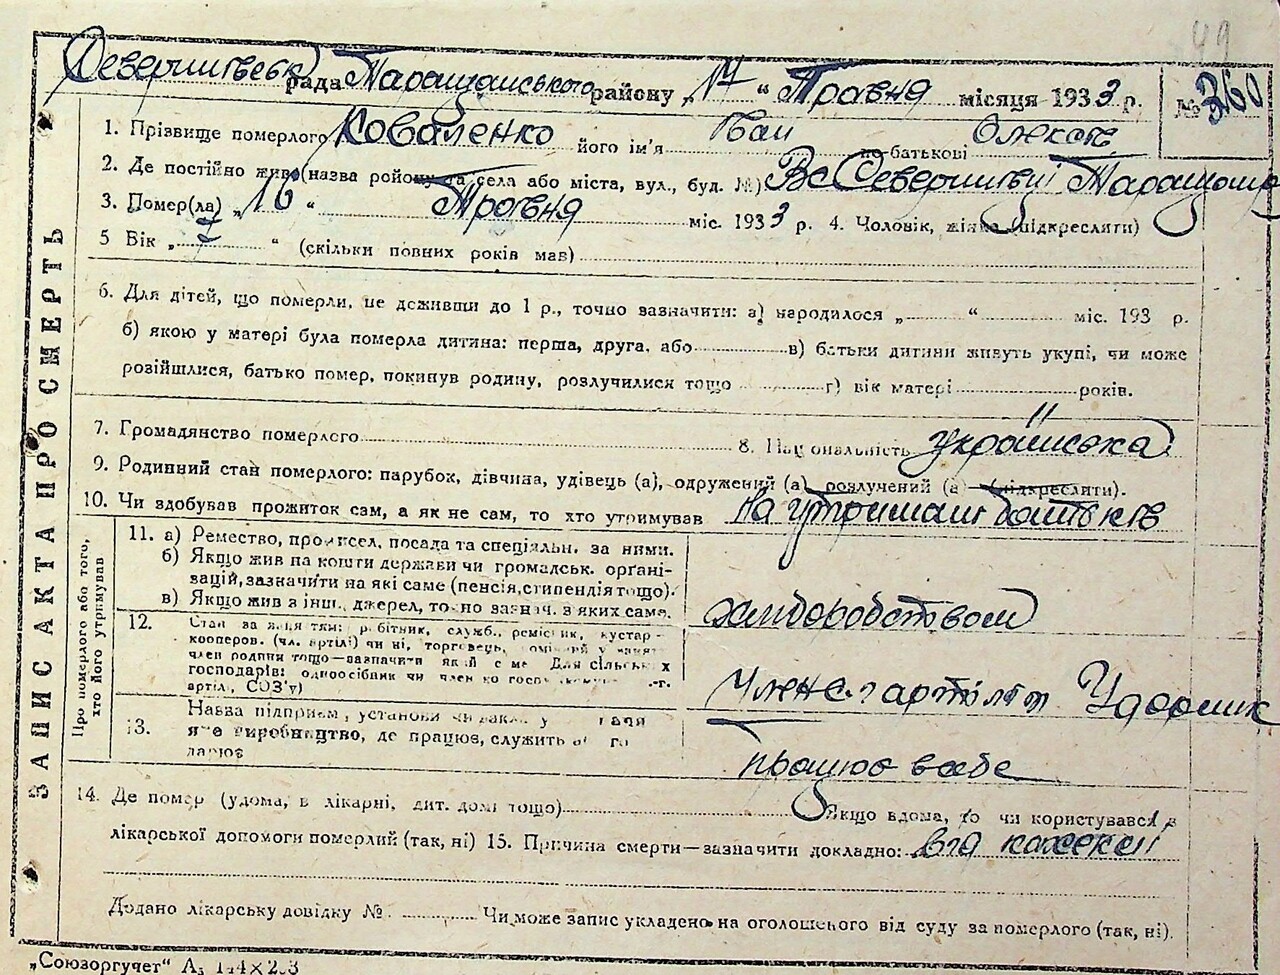 49
рада Таращанського району „17“ Травня місяця 1933 р. № 360
1. Прізвище померлого Коваленко його ім'я по батькові Олекс.
2. Де постійно жив (назва району та села або міста, вул., буд. №)
3. Помер(ла) „16“ Травня міс. 1933 р. 4. Чоловік, жінка (підкреслити)
5 Вік „7“ (скільки повних років мав)
6. Для дітей, що померли, не доживши до 1 р., точно зазначити: а) народилося „ “ міс. 193 р.
б) якою у матері була померла дитина: перша, друга, або в) батьки дитини живуть укупі, чи може
розійшлися, батько помер, покинув родину, розлучилися тощо г) вік матері років.
7. Громадянство померлого 8. Національність українська
9. Родинний стан померлого: парубок, дівчина, удівець (а), одружений (а), розлучений (а) (підкреслити).
10. Чи здобував прожиток сам, а як не сам, то хто утримував на утриманні батьків
ЗАПИС АКТА ПРО СМЕРТЬ
Про померлого або того, хто його утримував
11. а) Ремество, промисел, посада та спеціальн. за ними.
б) Якщо жив на кошти держави чи громадськ. органі-
зацій, зазначити на які саме (пенсія, стипендія тощо).
в) Якщо жив з інш. джерел, точно зазнач. з яких саме.
хліборобством
12. Стан за заняттям: робітник, служб., реміСник, кустар-
кооперов. (чл. артілі) чи ні, торговець,
член родини тощо—зазначити який саме Для сільськ х
господарів: одноосібник чи член
артіл, СОЗ'у)
член с.г артіли Ударник
13. Назва підприєм, установи чи
яке виробництво, де працює, служить
працює в себе
14. Де помер (удома, в лікарні, дит. домі тощо) Якщо вдома, то чи користувався з
лікарської допомоги померлий (так, ні) 15. Причина смерти—зазначити докладно: від кахексії
Додано лікарську довідку № Чи може запис укладено на оголошеного від суду за померлого (так, ні).
„Союзоргучет“ А₃ 144×203